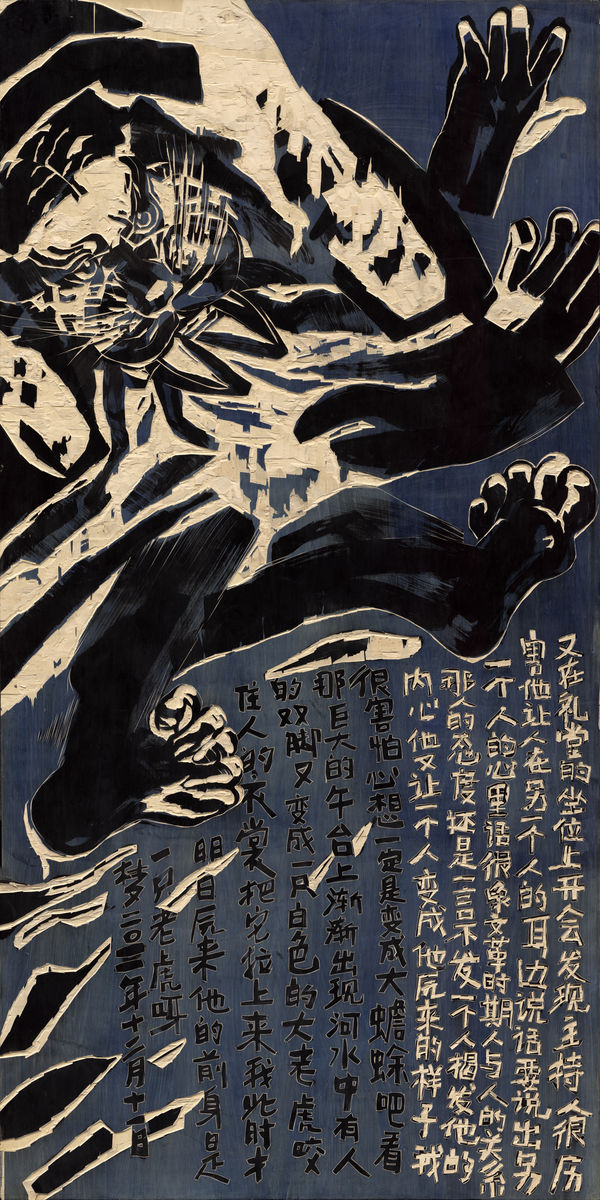 又在礼堂的坐位上开会发现主持人很厉
害他让人在另一个人的耳边说话要说出另
一个人的心里话很象文革时期人与人的关系
那人的态度还是一言不发一个人揭发他的
内心他又让一个人变成他原来的样子我
很害怕心想一定是变成大蟾蜍吧看
那巨大的午台上渐渐出现河水中有人
的双脚又变成一只白色的大老虎咬
住人的衣裳把它拉上来我此时才
明白原来他的前身是
一只老虎啊
梦二〇一二年十二月十一日